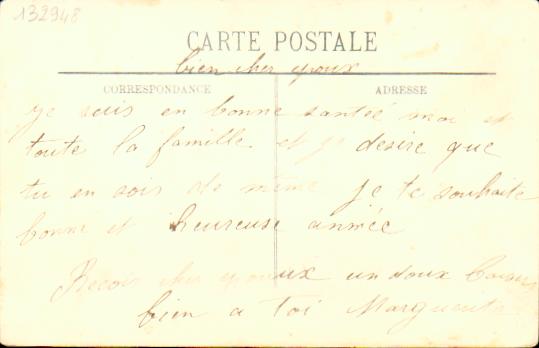 132948
CARTE POSTALE
bien cher epoux
CORRESPONDANCE
ADRESSE
je suis en bonne santée moi et
toute la famille. et je désire que
tu en sois de même je te souhaite
bonne et heureuse année
Recois cher epouix un doux
bien a toi Marguerite